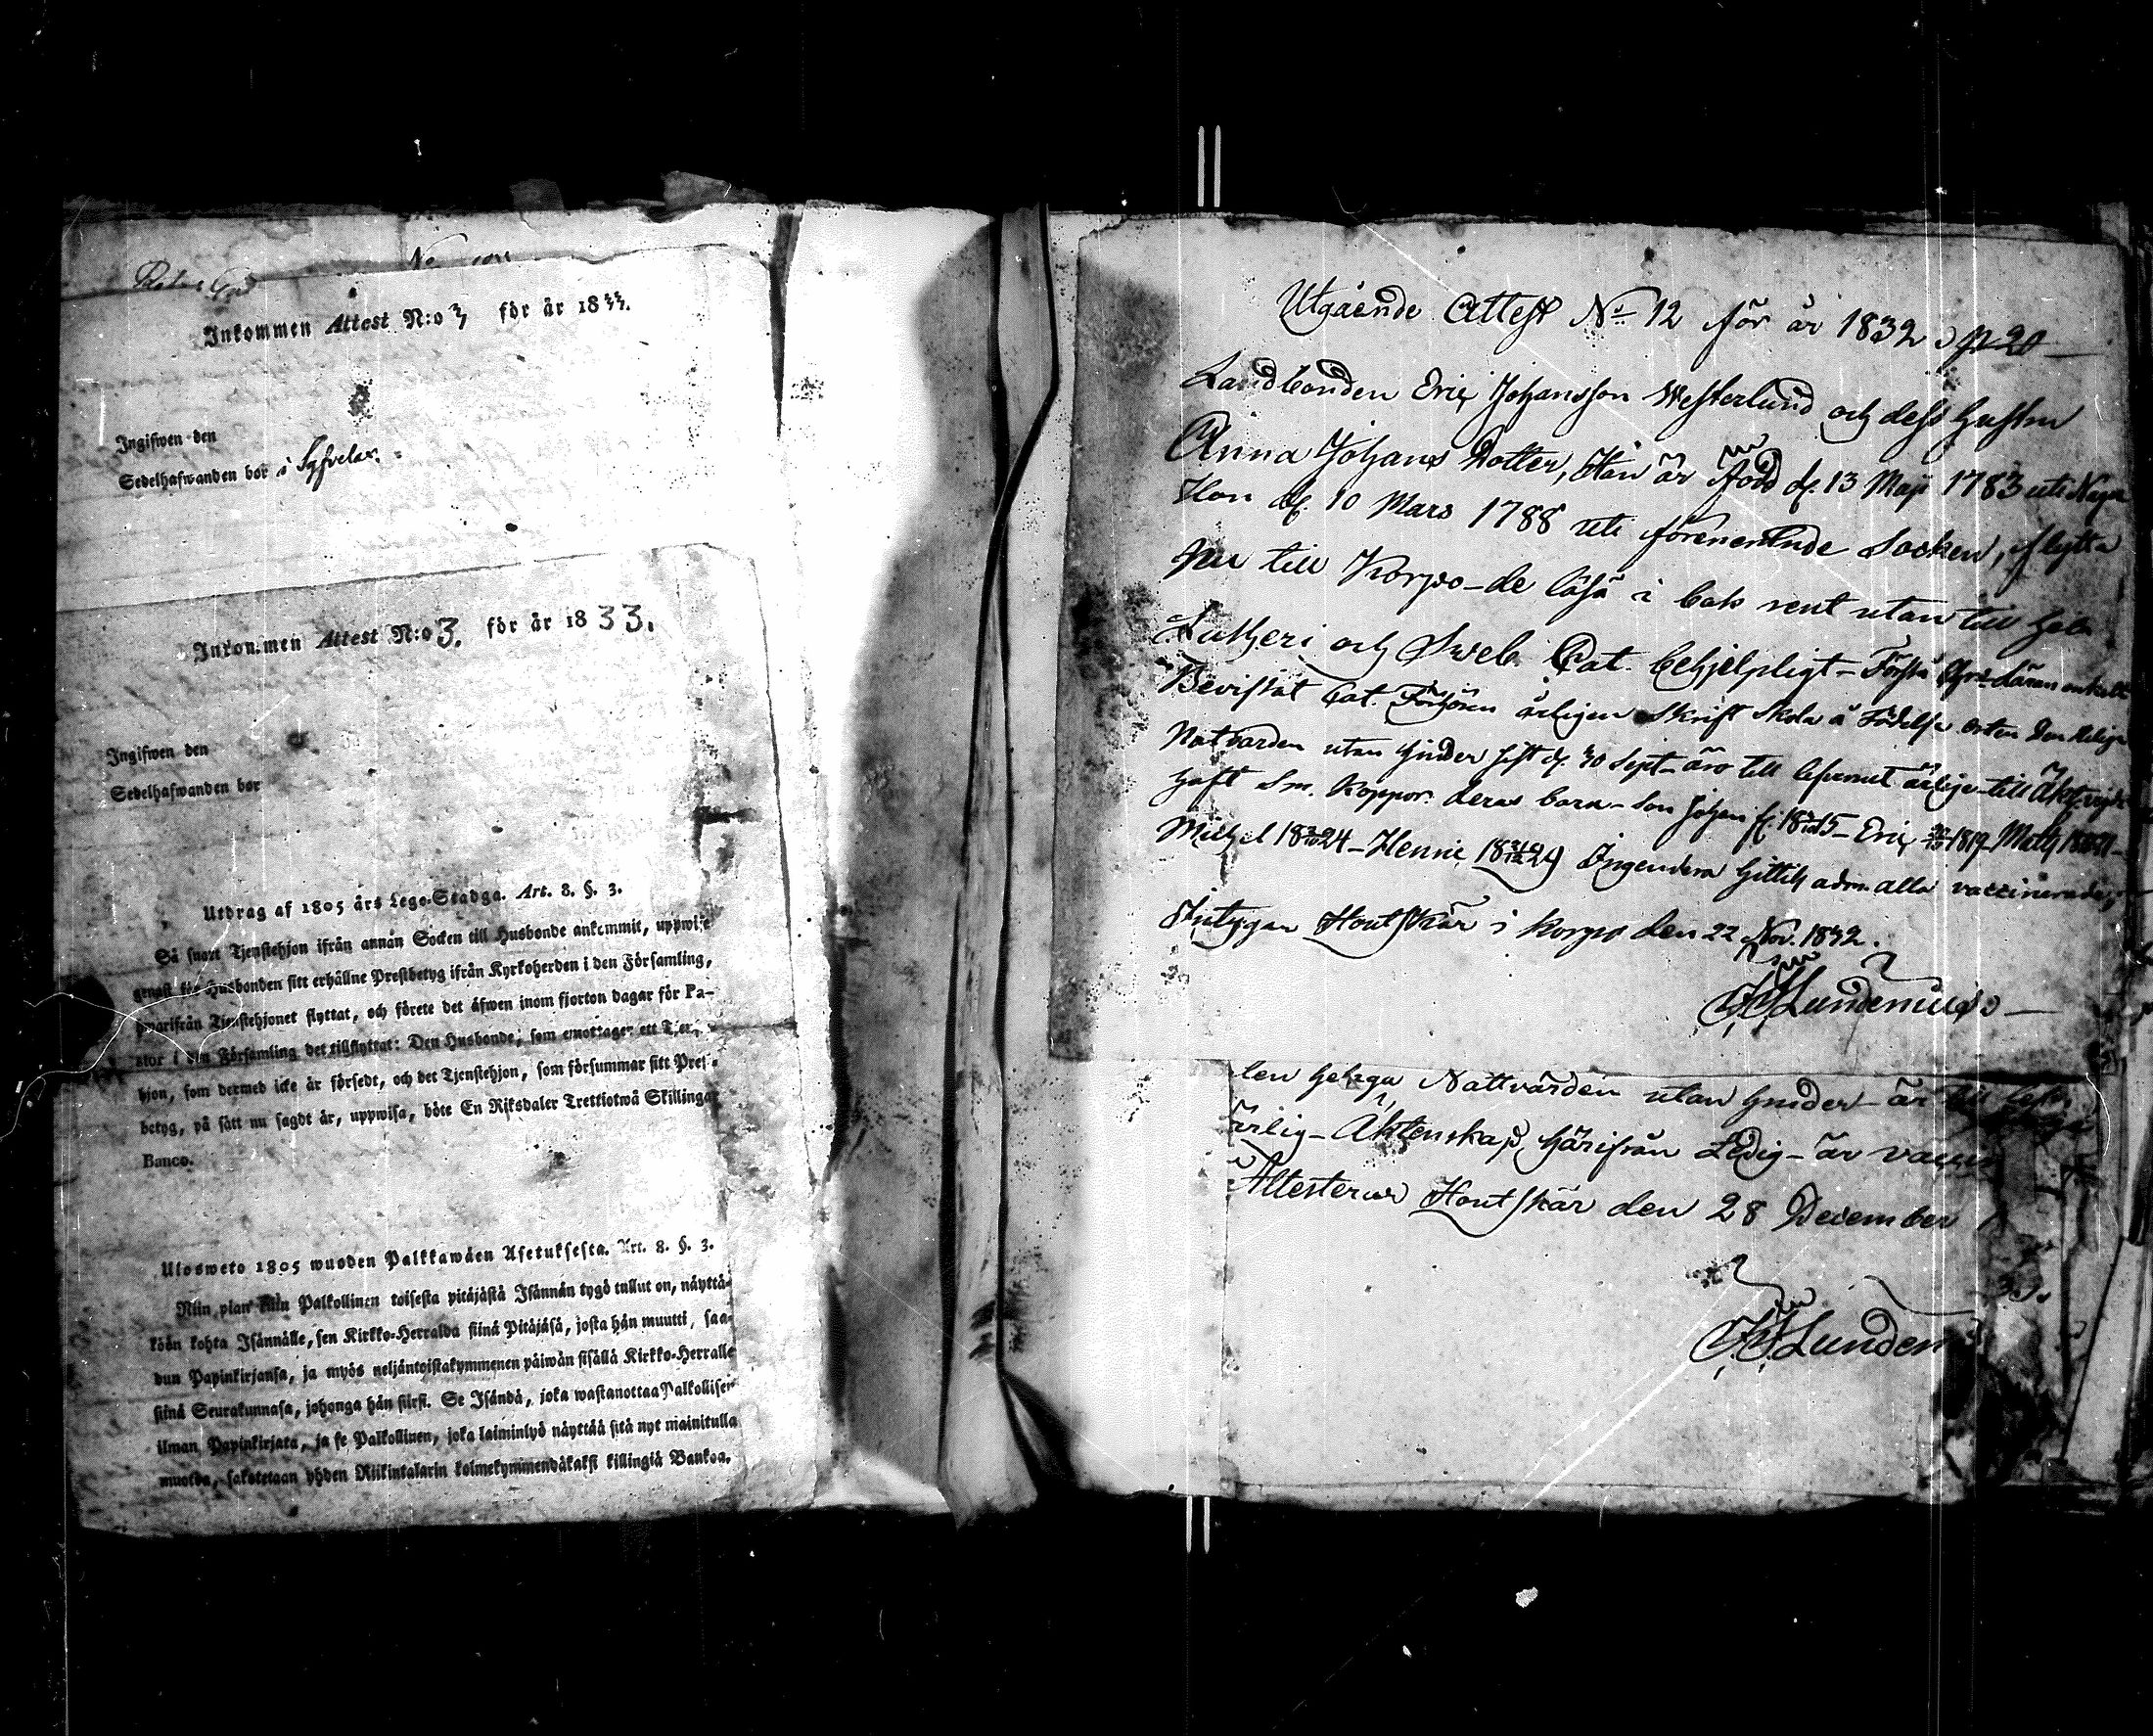 Inkommen Attest N:o 3 för år 1833.
Ingifwen den
Sedelhafwanden bor i
Inkommen Attest N:o 3. för år 1833.
Ingifwen den
Sedelhafwanden bor
Utdrag af 1805 års Lego-Stadga. Art. 8. §. 3.
Så snart Tjenstehjon ifrån annan Socken till Husbonde ankommit, uppwise
genast för Husbonden sitt erhållne Prestbetyg ifrån Kyrkoherden i den Församling,
hwarifrån Tjenstehjonet flyttat, och förete det äfwen inom fjorton dagar för Pa-
stor i den Församling det tillflyttat: Den Husbonde, som emottager ett Tjenste-
hjon, som dermed icke är försedt, och det Tjenstehjon, som försummar sitt Prest-
betyg, på sätt nu sagdt är, uppwisa, böte En Riksdaler Trettiotwå Skillingar
Banco.
Ulosweto 1805 wuoden Palkkawäen Asetuksesta. Art. 8. §. 3.
Niin pian kuin Palkollinen toisesta pitäjästä Isännän tygö tullut on, näyttä-
köön kohta Isännälle, sen Kirkko-Herralda siinä Pitäjäsä, josta hän muutti, saa-
dun Papinkirjansa, ja myös neljäntoistakymmenen päiwän sisällä Kirkko-Herralle
siinä Seurakunnasa, johonga hän siirsi. Se Isändä, joka wastanottaa Palkollisen
ilman Papinkirjata, ja se Palkollinen, joka laiminlyö näyttää sitä nyt mainitulla
muodolla, sakotetaan yhden Riikintalarin kolmekymmendäkaksi killingiä Bankoa.
Utgående Attest No 12 för år 1832
Landbonden Eric Johansson Westerlund och dess hustru
Anna Johans Dotter, Han är född d. 13 Maji 1783 uti Nagu
Hon d. 10 Mars 1788 uti förenemnde Socken, flytta
nu till Korpo - de läsa i bok rent utan till hela
Lutheri och Sweb. Cat. behjelpligt - Första Chr: Läran enkelt
Bevistat Cat. Förhören årligen Skrift Skola å Födelse orten Den Helige
Nattvarden utan hinder sist d. 30 Sept - äro till lefvernet ärlige - till
haft Sm. Koppor. deras barn - Son Johan f. - Eric 1819
Michel - Henric Ingendera hittills adm. alla vaccinerade,
Intygar Houtskär i Korpo den 22 Nov. 1832.
Lundenius
den heliga Nattvarden utan hinder - är till
ärlig - Äktenskap härifrån Ledig - är
Attesterar Houtskär den 28 December
Lunden